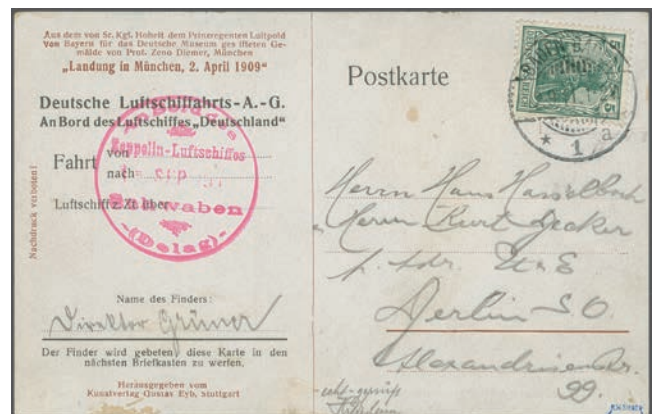 Aus dem von Sr. Kgl. Hoheit dem Prinzregenten Luitpold
von Bayern für das Deutsche Museum gestifteten Ge-
mälde von Prof. Zeno Diemer, München
„Landung in München, 2. April 1909“
Deutsche Luftschiffahrts-A.-G.
An Bord des Luftschiffes „Deutschland“
Fahrt von
nach
Luftschiff z. Zt. über
An Bord des
Zeppelin-Luftschiffes
SEP
Schwaben
-(Delag)-
Nachdruck verboten!
Name des Finders:
Direktor Grüner
Der Finder wird gebeten, diese Karte in den
nächsten Briefkasten zu werfen.
Herausgegeben vom
Kunstverlag Gustav Eyb, Stuttgart
Postkarte
BADEN-BADEN
* 1 a
5
Herrn Hans Hasselbach
Herrn Kurt Becker
Berlin SO.
Alexandrinenstr.
99.